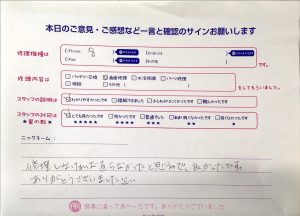 本日のご意見・ご感想など一言と確認のサインお願いします
修理機種は iPhone 8 Android
iPad その他 です。
修理内容は バッテリー交換 画面修理 水没修理 パーツ修理
その他 をしてもらいました。
スタッフの説明は わかりやすかったです 理解できました 少しわかりにくかったです 難しかったです
スタッフの対応は とても良かったです 良かったです 普通でした
★の数 ★★★★★ ★★★★ ★★★ ★★ ★
ニックネーム：
修理しなければ直らなかったと思うので、良かったです。
ありがとうございました
無事に直って良かったです。ありがとうございました